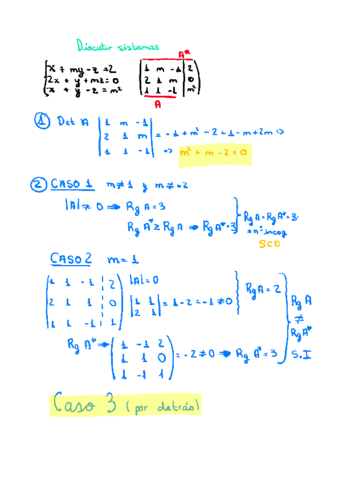 Discutir sistemas
A*
{x + my - z = 2
2x + y + mz = 0
x + y - z = m²
(1 m -1 | 2
2 1 m | 0
1 1 -1 | m²)
A
① Det A |1 m -1
2 1 m
1 1 -1| = -1 + m² - 2 + 1 - m + 2m ⇒
⇒ m² + m - 2 = 0
② CASO 1 m ≠ 1 y m ≠ -2
|A| ≠ 0 ⇒ Rg A = 3
Rg A* ≥ Rg A ⇒ Rg A* = 3
Rg A = Rg A* = 3 =
= nº incog
SCD
CASO 2 m = 1
(1 1 -1 2
2 1 1 0
1 1 -1 1)
|A| = 0
|1 1
2 1| = 1 - 2 = -1 ≠ 0
Rg A = 2
Rg A* → (1 -1 2
1 1 0
1 -1 1) = -2 ≠ 0 ⇒ Rg A* = 3
Rg A
≠
Rg A*
S.I
Caso 3 (por detrás)